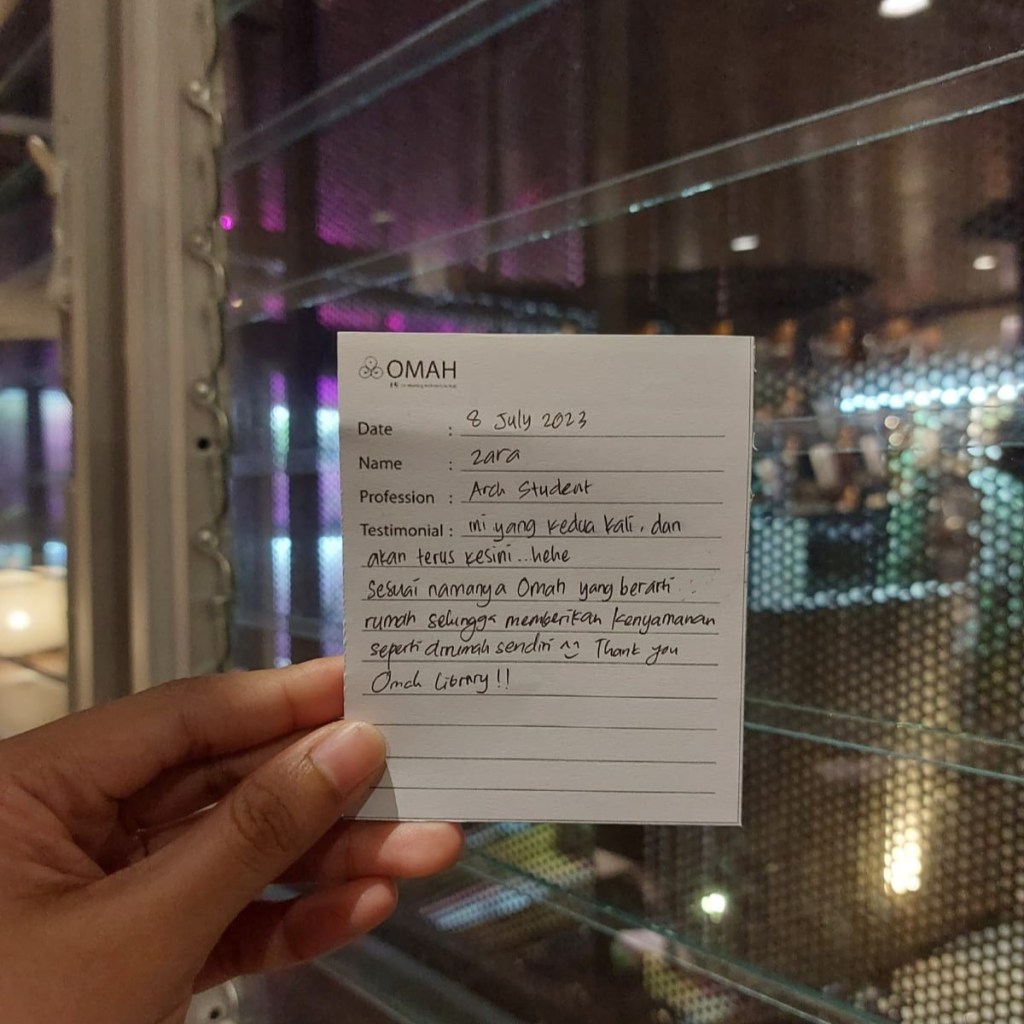 OMAH
Date : 8 July 2023
Name : Zara
Profession : Arch Student
Testimonial : ini yang kedua kali, dan
akan terus kesini...hehe
Sesuai namanya Omah yang berarti :
rumah sehingga memberikan kenyamanan
seperti dirumah sendiri ^‿^ Thank you
Omah Library!!